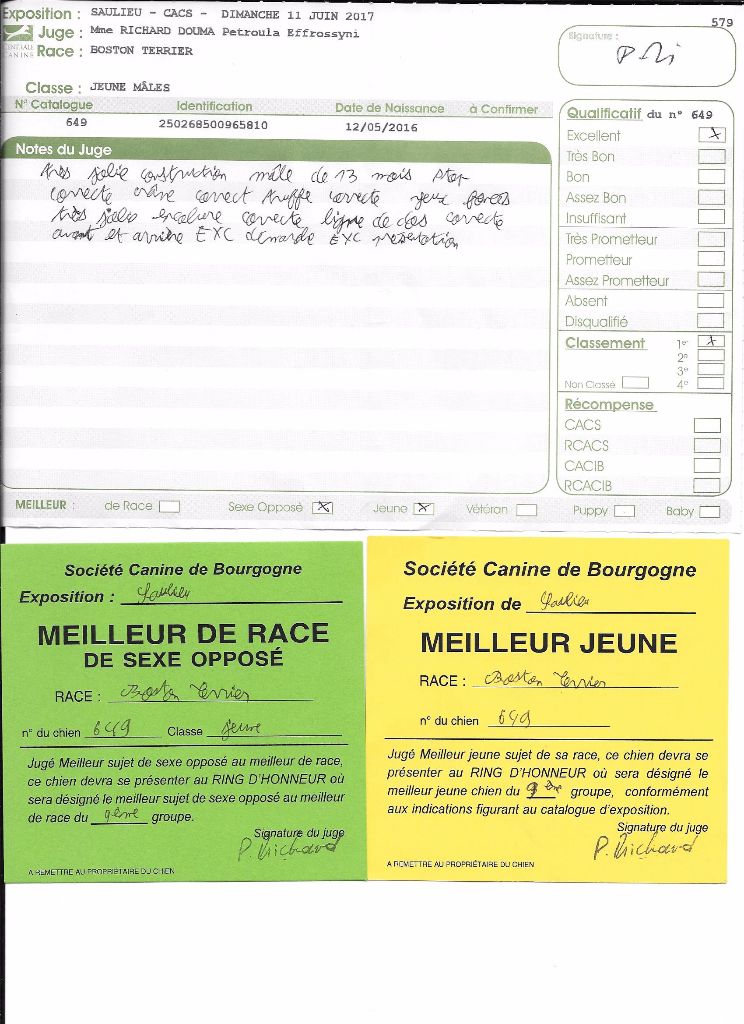 Exposition : SAULIEU - CACS - DIMANCHE 11 JUIN 2017
579
Juge : Mme RICHARD DOUMA Petroula Effrossyni
CENTRALE CANINE
Race : BOSTON TERRIER
Signature :
Classe : JEUNE MÂLES
N° Catalogue Identification Date de Naissance à Confirmer
649 250268500965810 12/05/2016
Notes du Juge
très jolie construction mâle de 13 mois stop
correcte crâne correct truffe correcte yeux foncés
très jolie encolure correcte ligne de dos correcte
avant et arrière EXC demarche EXC presentation
Qualificatif du n° 649
Excellent X
Très Bon
Bon
Assez Bon
Insuffisant
Très Prometteur
Prometteur
Assez Prometteur
Absent
Disqualifié
Classement 1er X
2e
3e
Non Classé 4e
Récompense
CACS
RCACS
CACIB
RCACIB
MEILLEUR : de Race Sexe Opposé X Jeune X Vétéran Puppy Baby
Société Canine de Bourgogne
Exposition : Saulieu
MEILLEUR DE RACE
DE SEXE OPPOSÉ
RACE : Boston Terrier
n° du chien 649 Classe jeune
Jugé Meilleur sujet de sexe opposé au meilleur de race,
ce chien devra se présenter au RING D'HONNEUR où
sera désigné le meilleur sujet de sexe opposé au meilleur
de race du 9ème groupe.
Signature du juge
P. Richard
A REMETTRE AU PROPRIÉTAIRE DU CHIEN
Société Canine de Bourgogne
Exposition de Saulieu
MEILLEUR JEUNE
RACE : Boston Terrier
n° du chien 649
Jugé Meilleur jeune sujet de sa race, ce chien devra se
présenter au RING D'HONNEUR où sera désigné le
meilleur jeune chien du 9ème groupe, conformément
aux indications figurant au catalogue d'exposition.
Signature du juge
P. Richard
A REMETTRE AU PROPRIÉTAIRE DU CHIEN